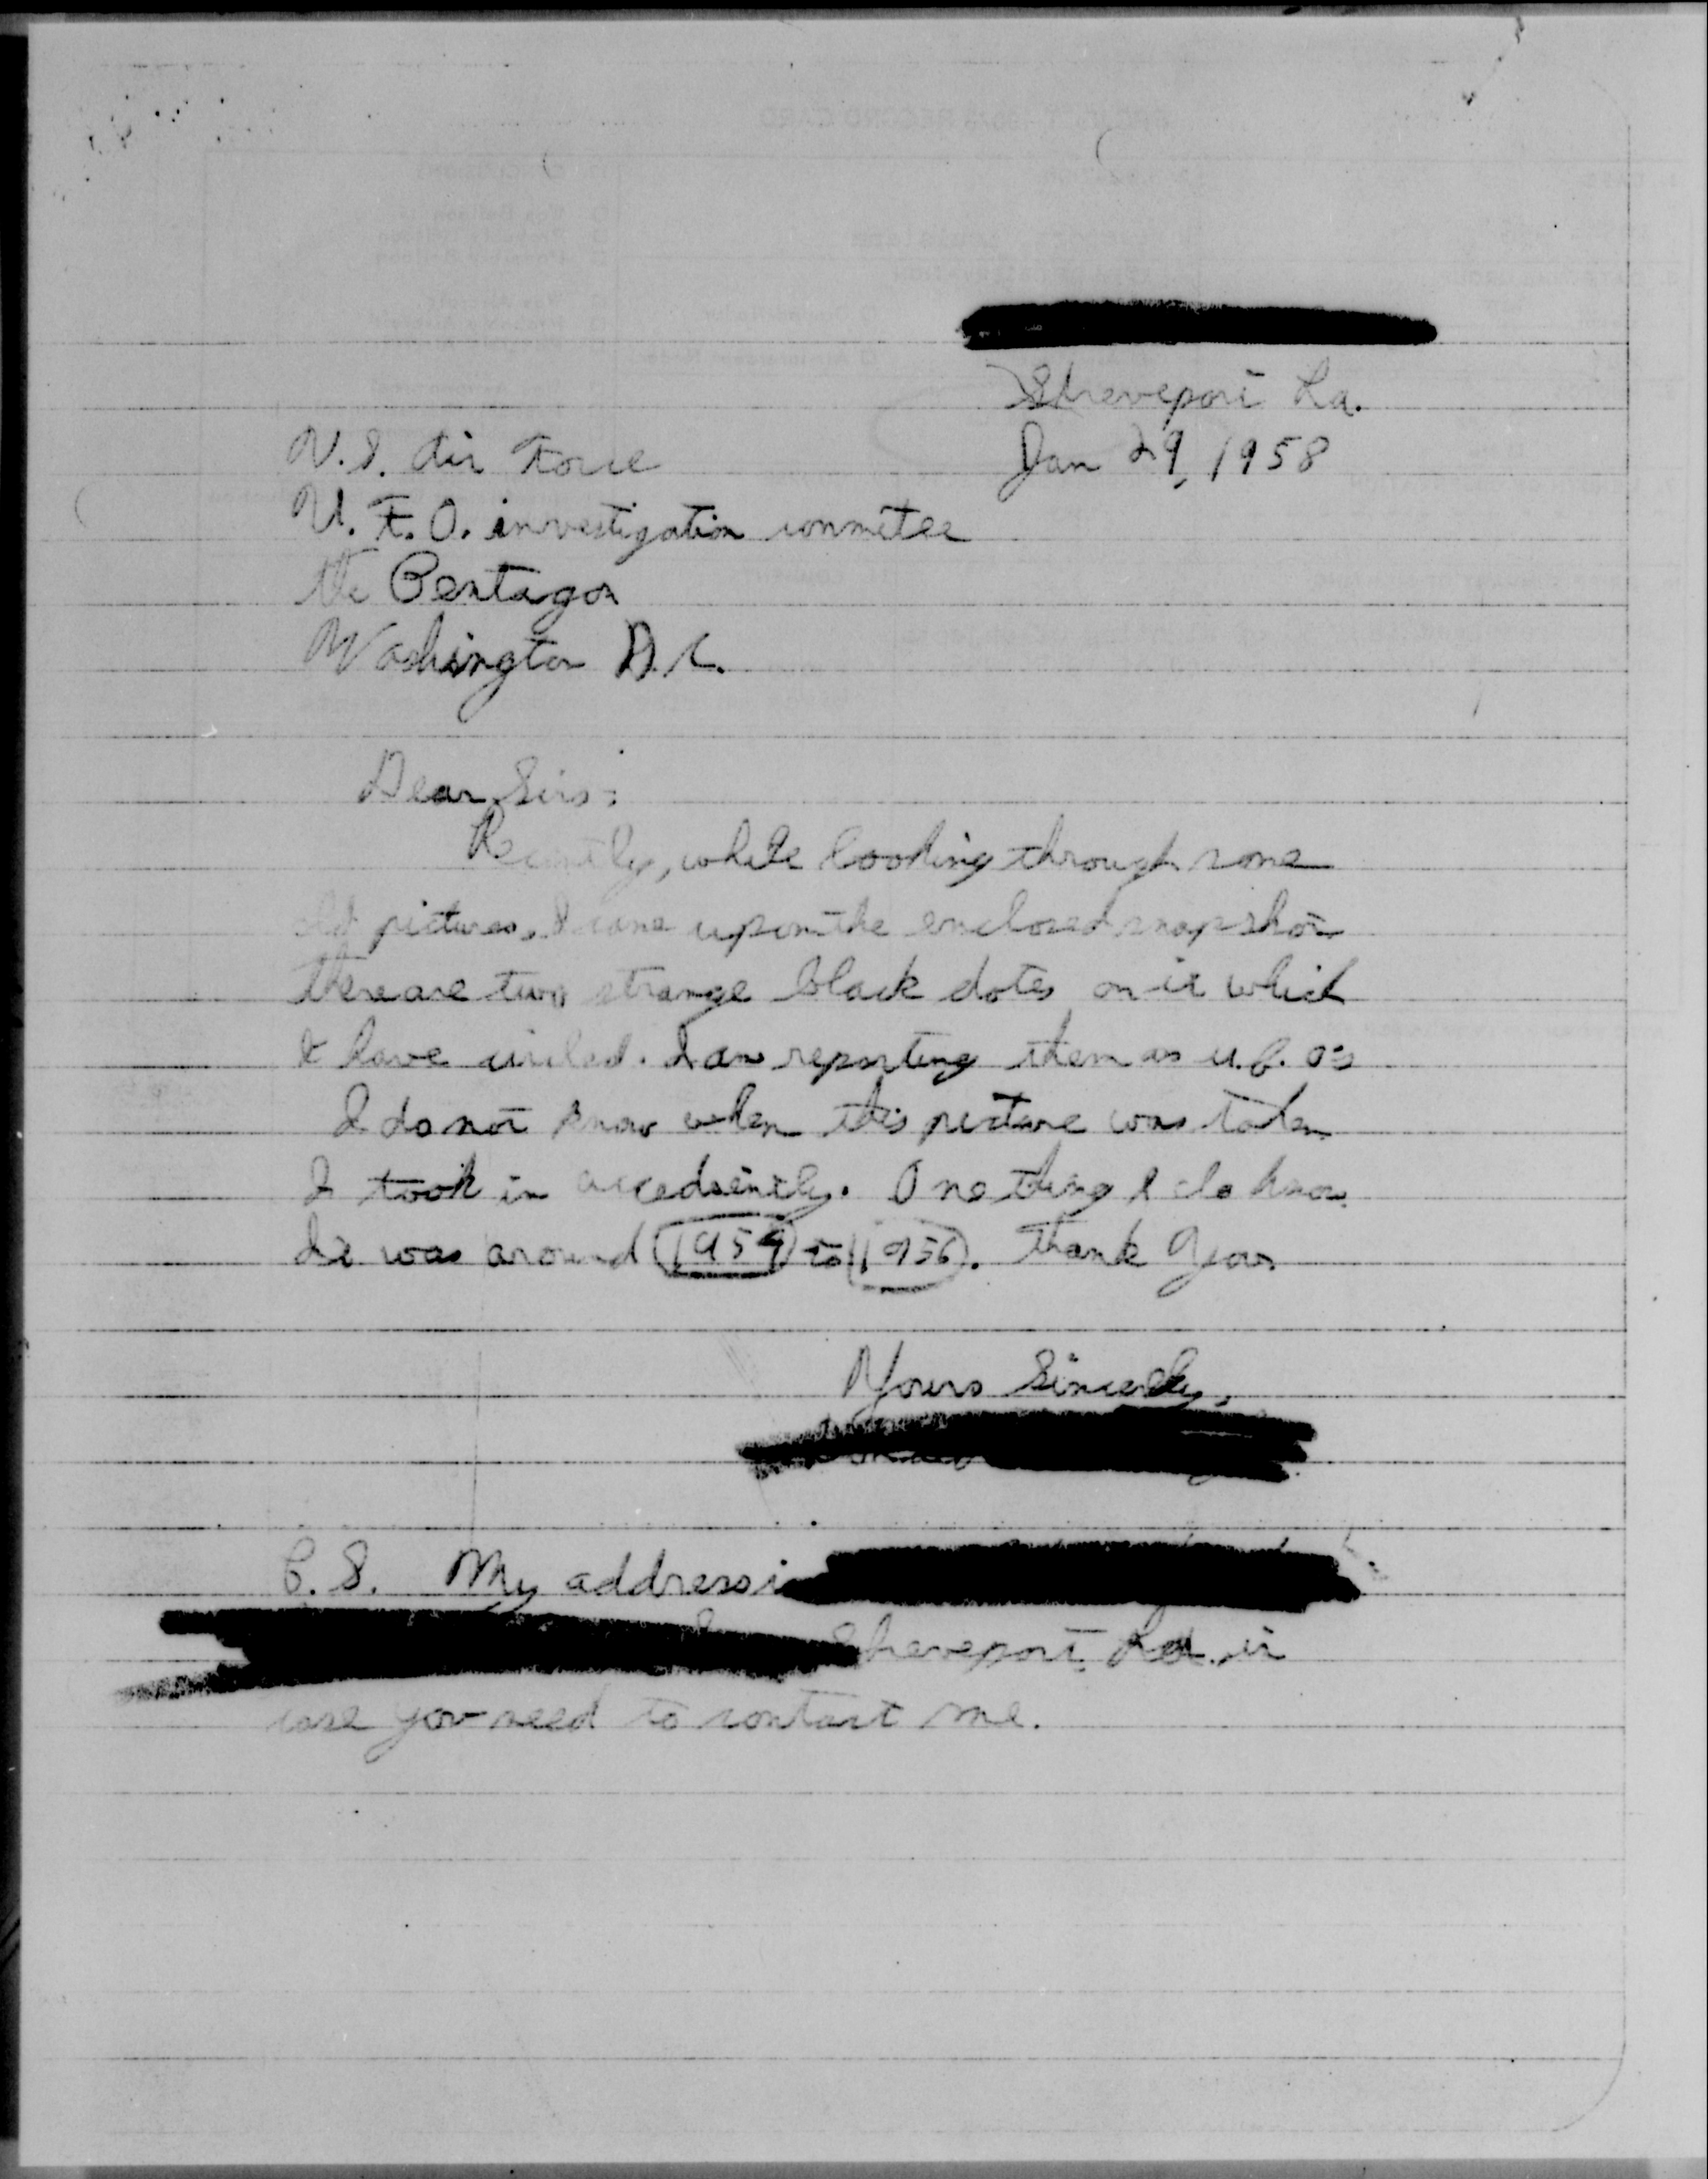 Shreveport La.
Jan 29, 1958
U.S. Air Force
U.F.O. investigation conmitee
the Pentagon
Washington D.C.
Dear Sirs:
Recently, while looking through some
old pictures, I came upon the enclosed snapshot
there are two strange black dotes on it which
I have circled. I am reporting them as u.f.o's
I do not know when this picture was taken
I took in accedently. One thing I do know
It was around 1954 to 1956. Thank You
Yours Sincerely,
P.S. My address i
Shreveport, La. in
case you need to contact me.